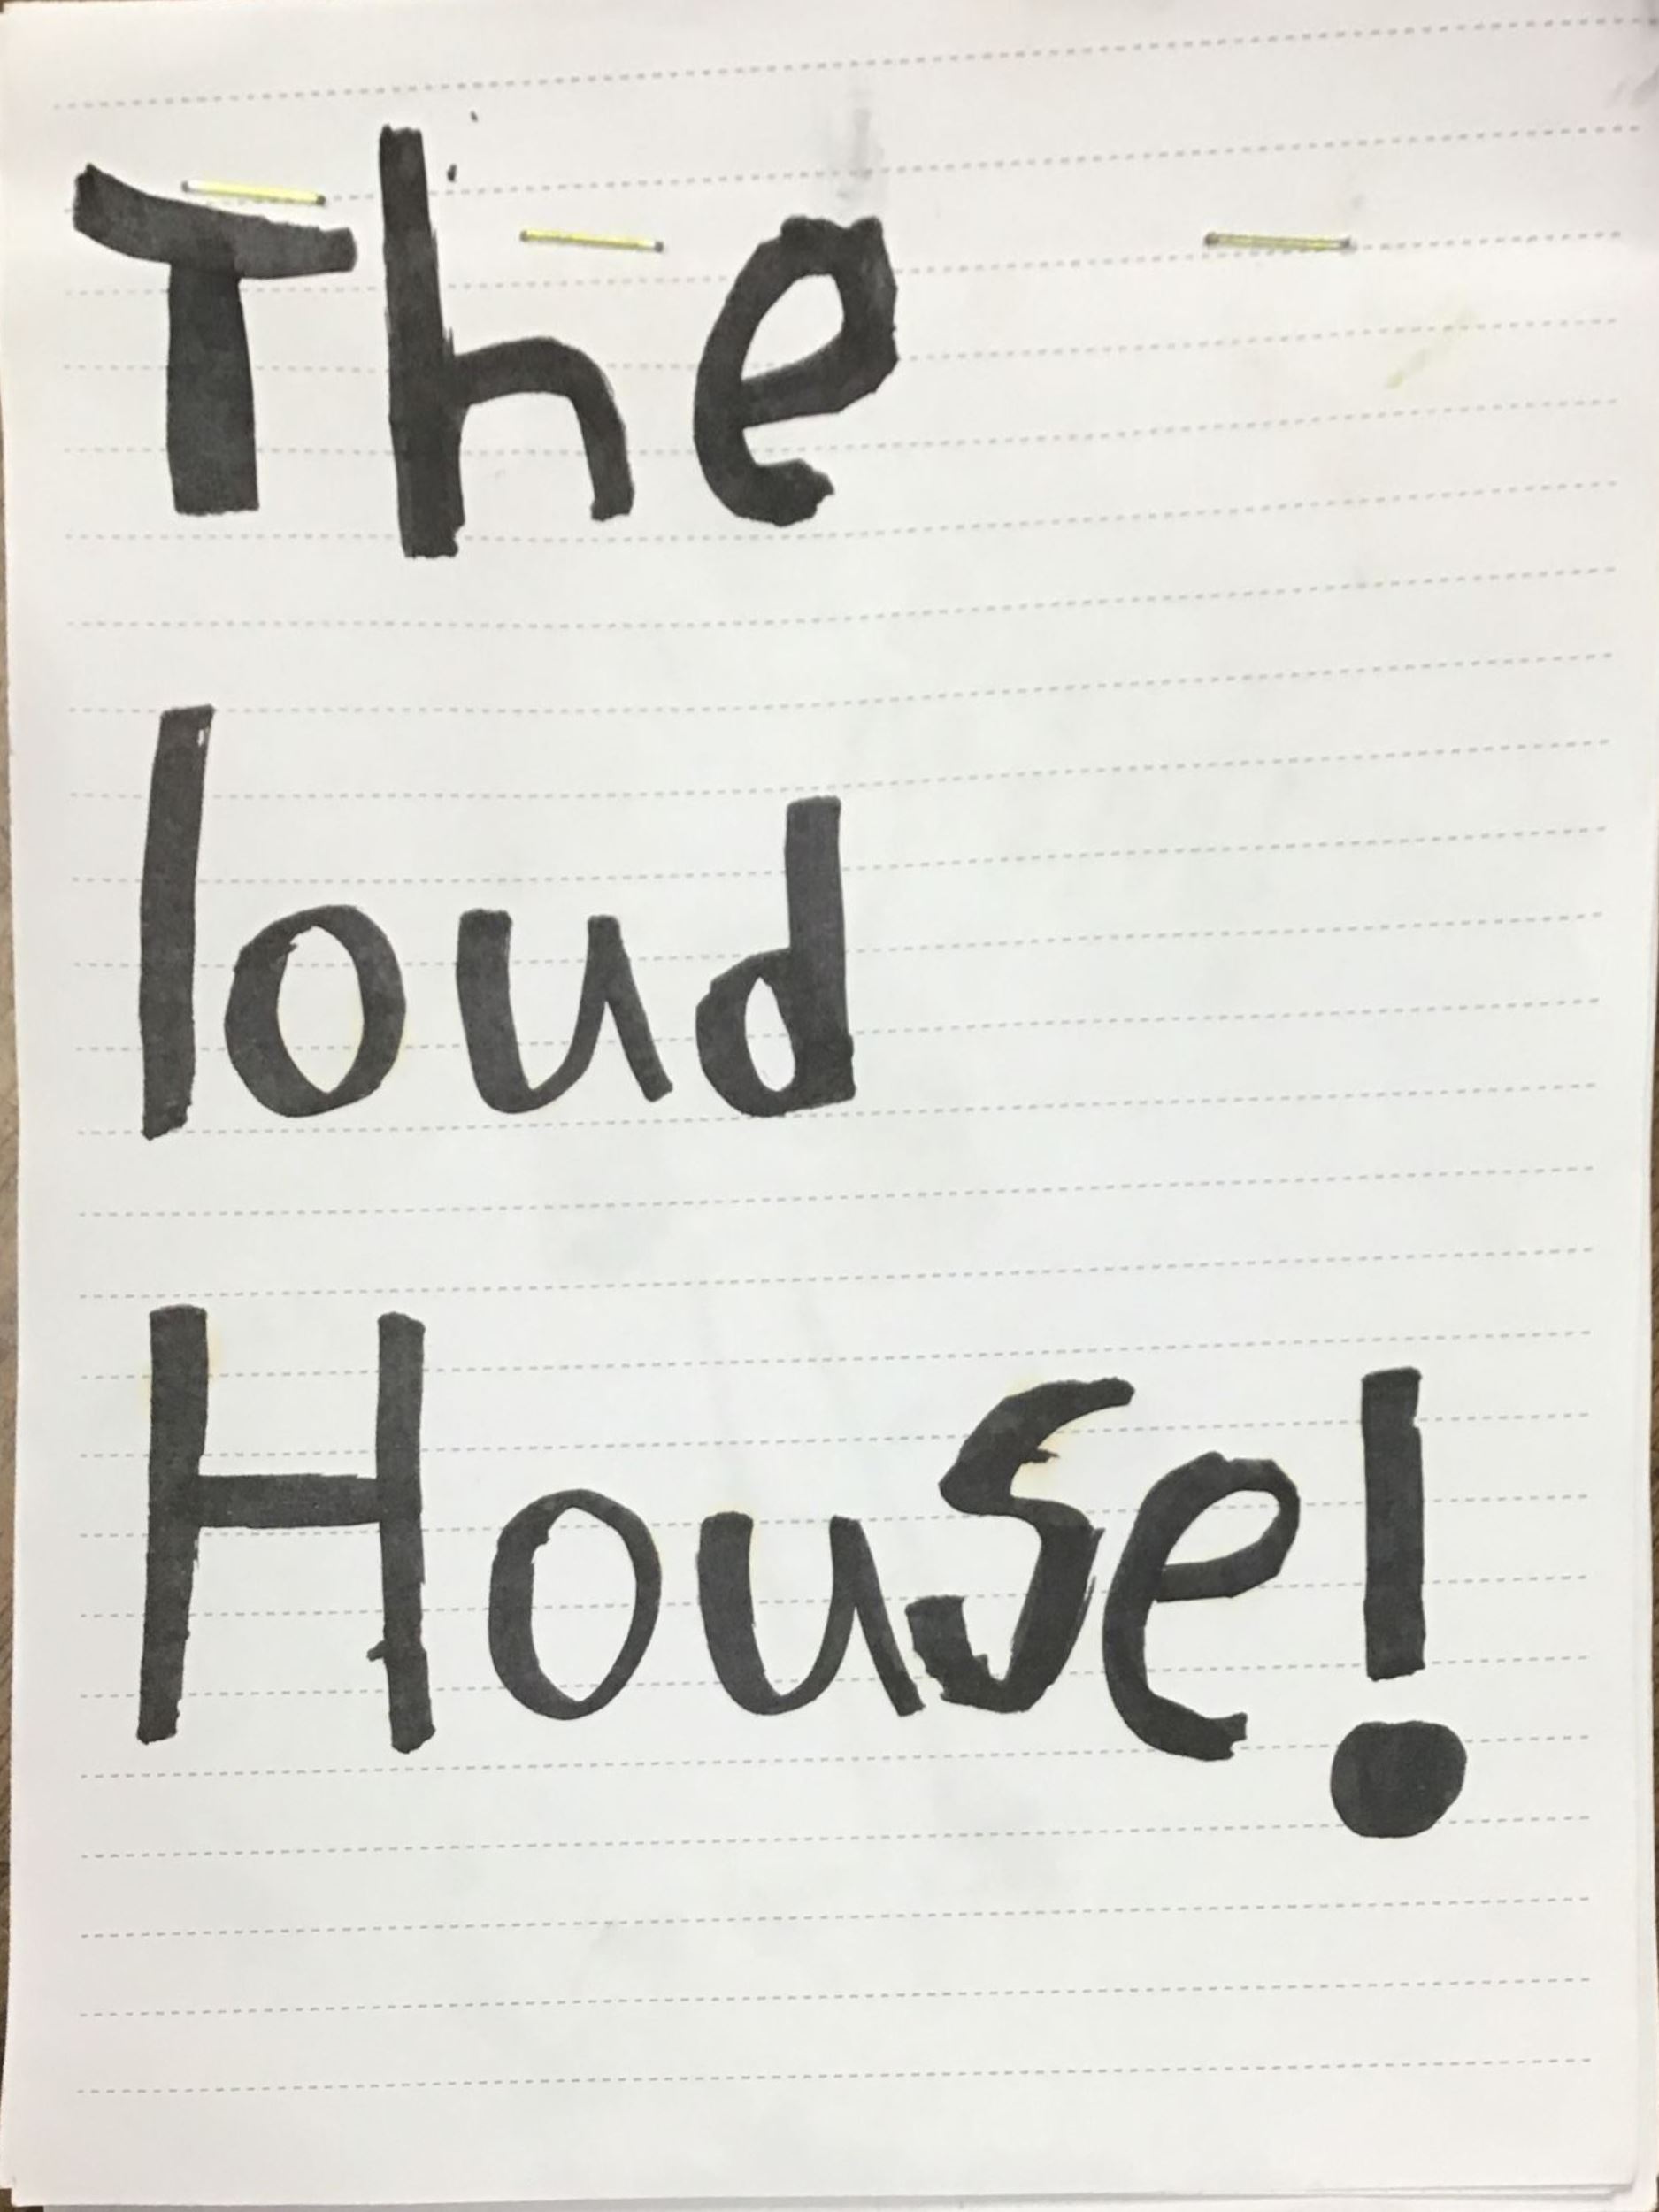 The
loud
House!